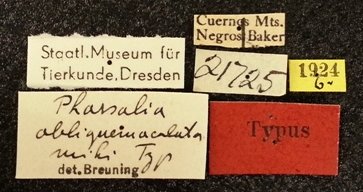 Cuernos Mts.
Negros Baker
Staatl. Museum für
Tierkunde, Dresden
21725
1924
6
Pharsalia
obliquemaculata
mihi Typ
det. Breuning
Typus